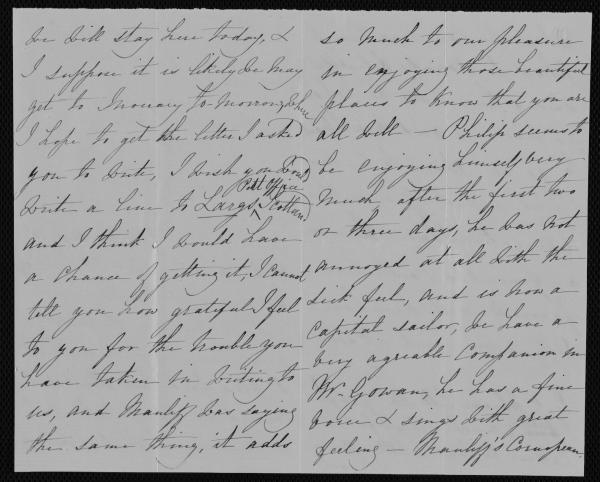 we will stay here today, &
I suppose it is likely we may
get to
I hope to get the letter I asked
you to write, I wish you would
write a line to Largs, Post Office Scotland
and I think I would have
a chance of getting it, I cannot
tell you how grateful I feel
to you for the trouble you
have taken in writing to
us, and was saying
the same thing, it adds
so much to our pleasure
in enjoying those beautiful
places to know that you are
all well — Philip seems to
be enjoying himself very
much, after the first two
or three days, he was not
annoyed at all with the
sick feel, and is now a
capital sailor, we have a
very agreable companion in
Mr. Gowan, he has a fine
voice & sings with great
feeling —